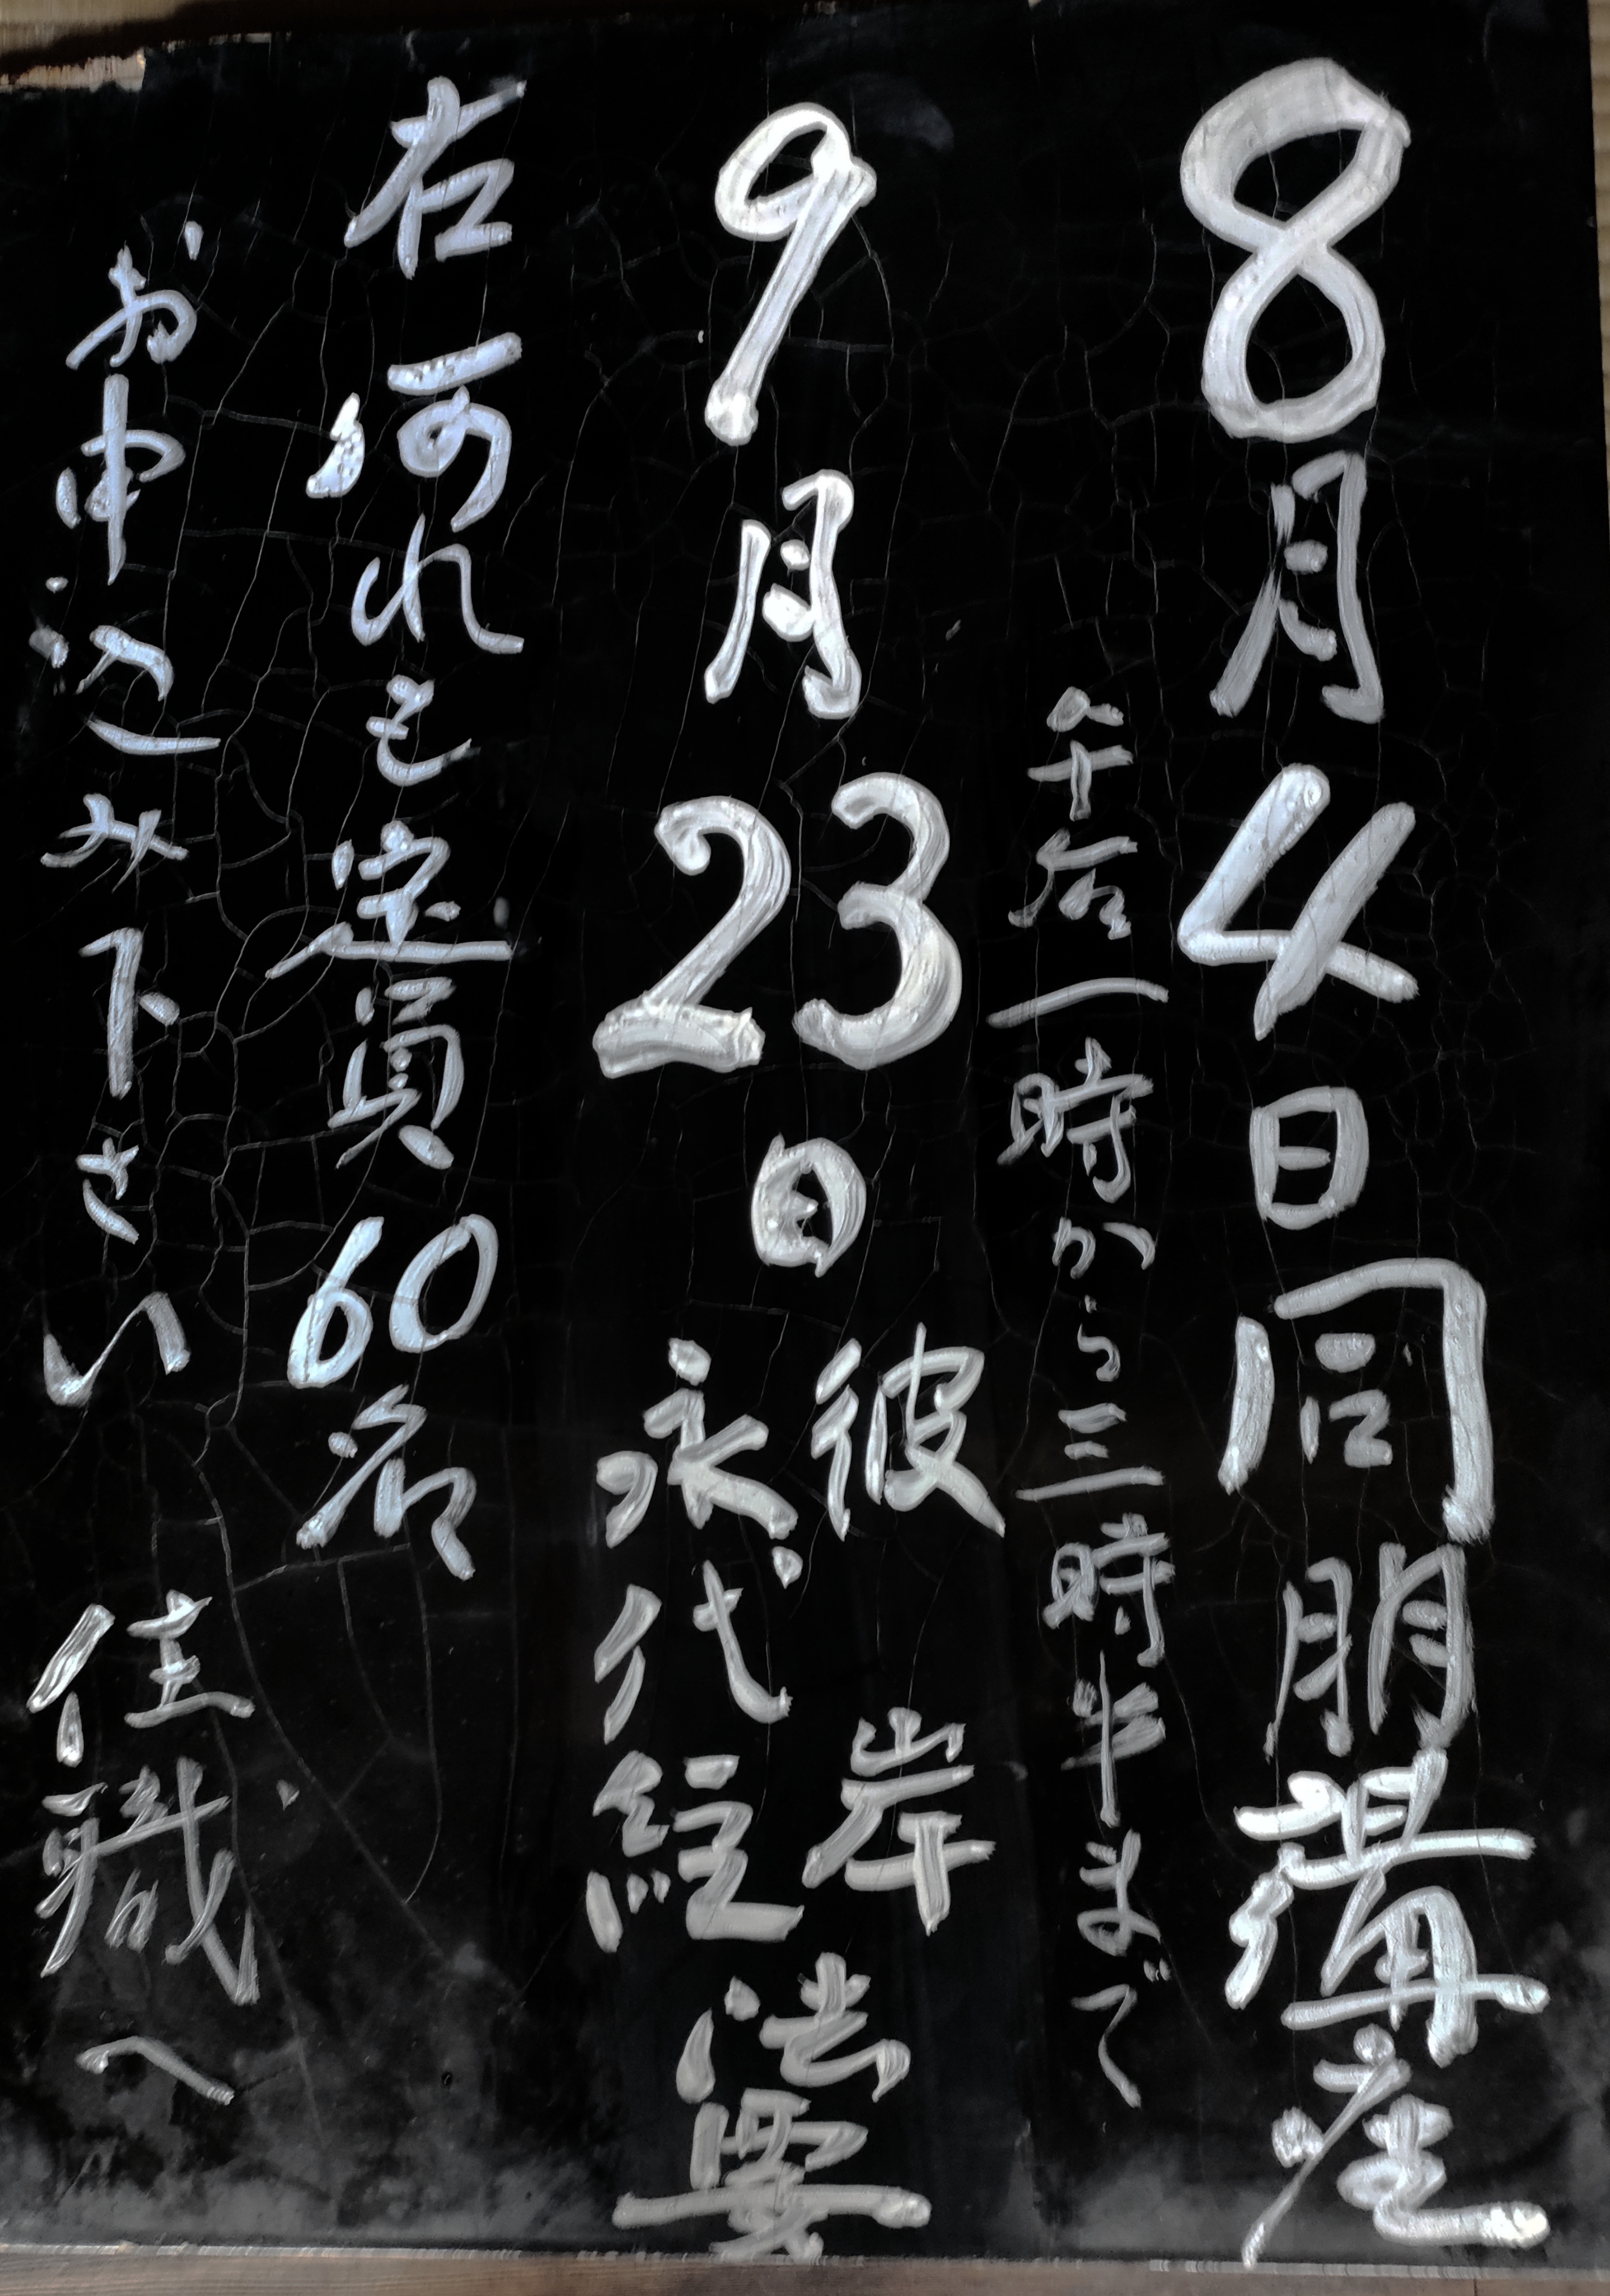 8月4日同朋講座
午后一時から三時半まで
9月23日
彼岸
永代経
法要
右何れも定員60名
お申込み下さい 住職へ